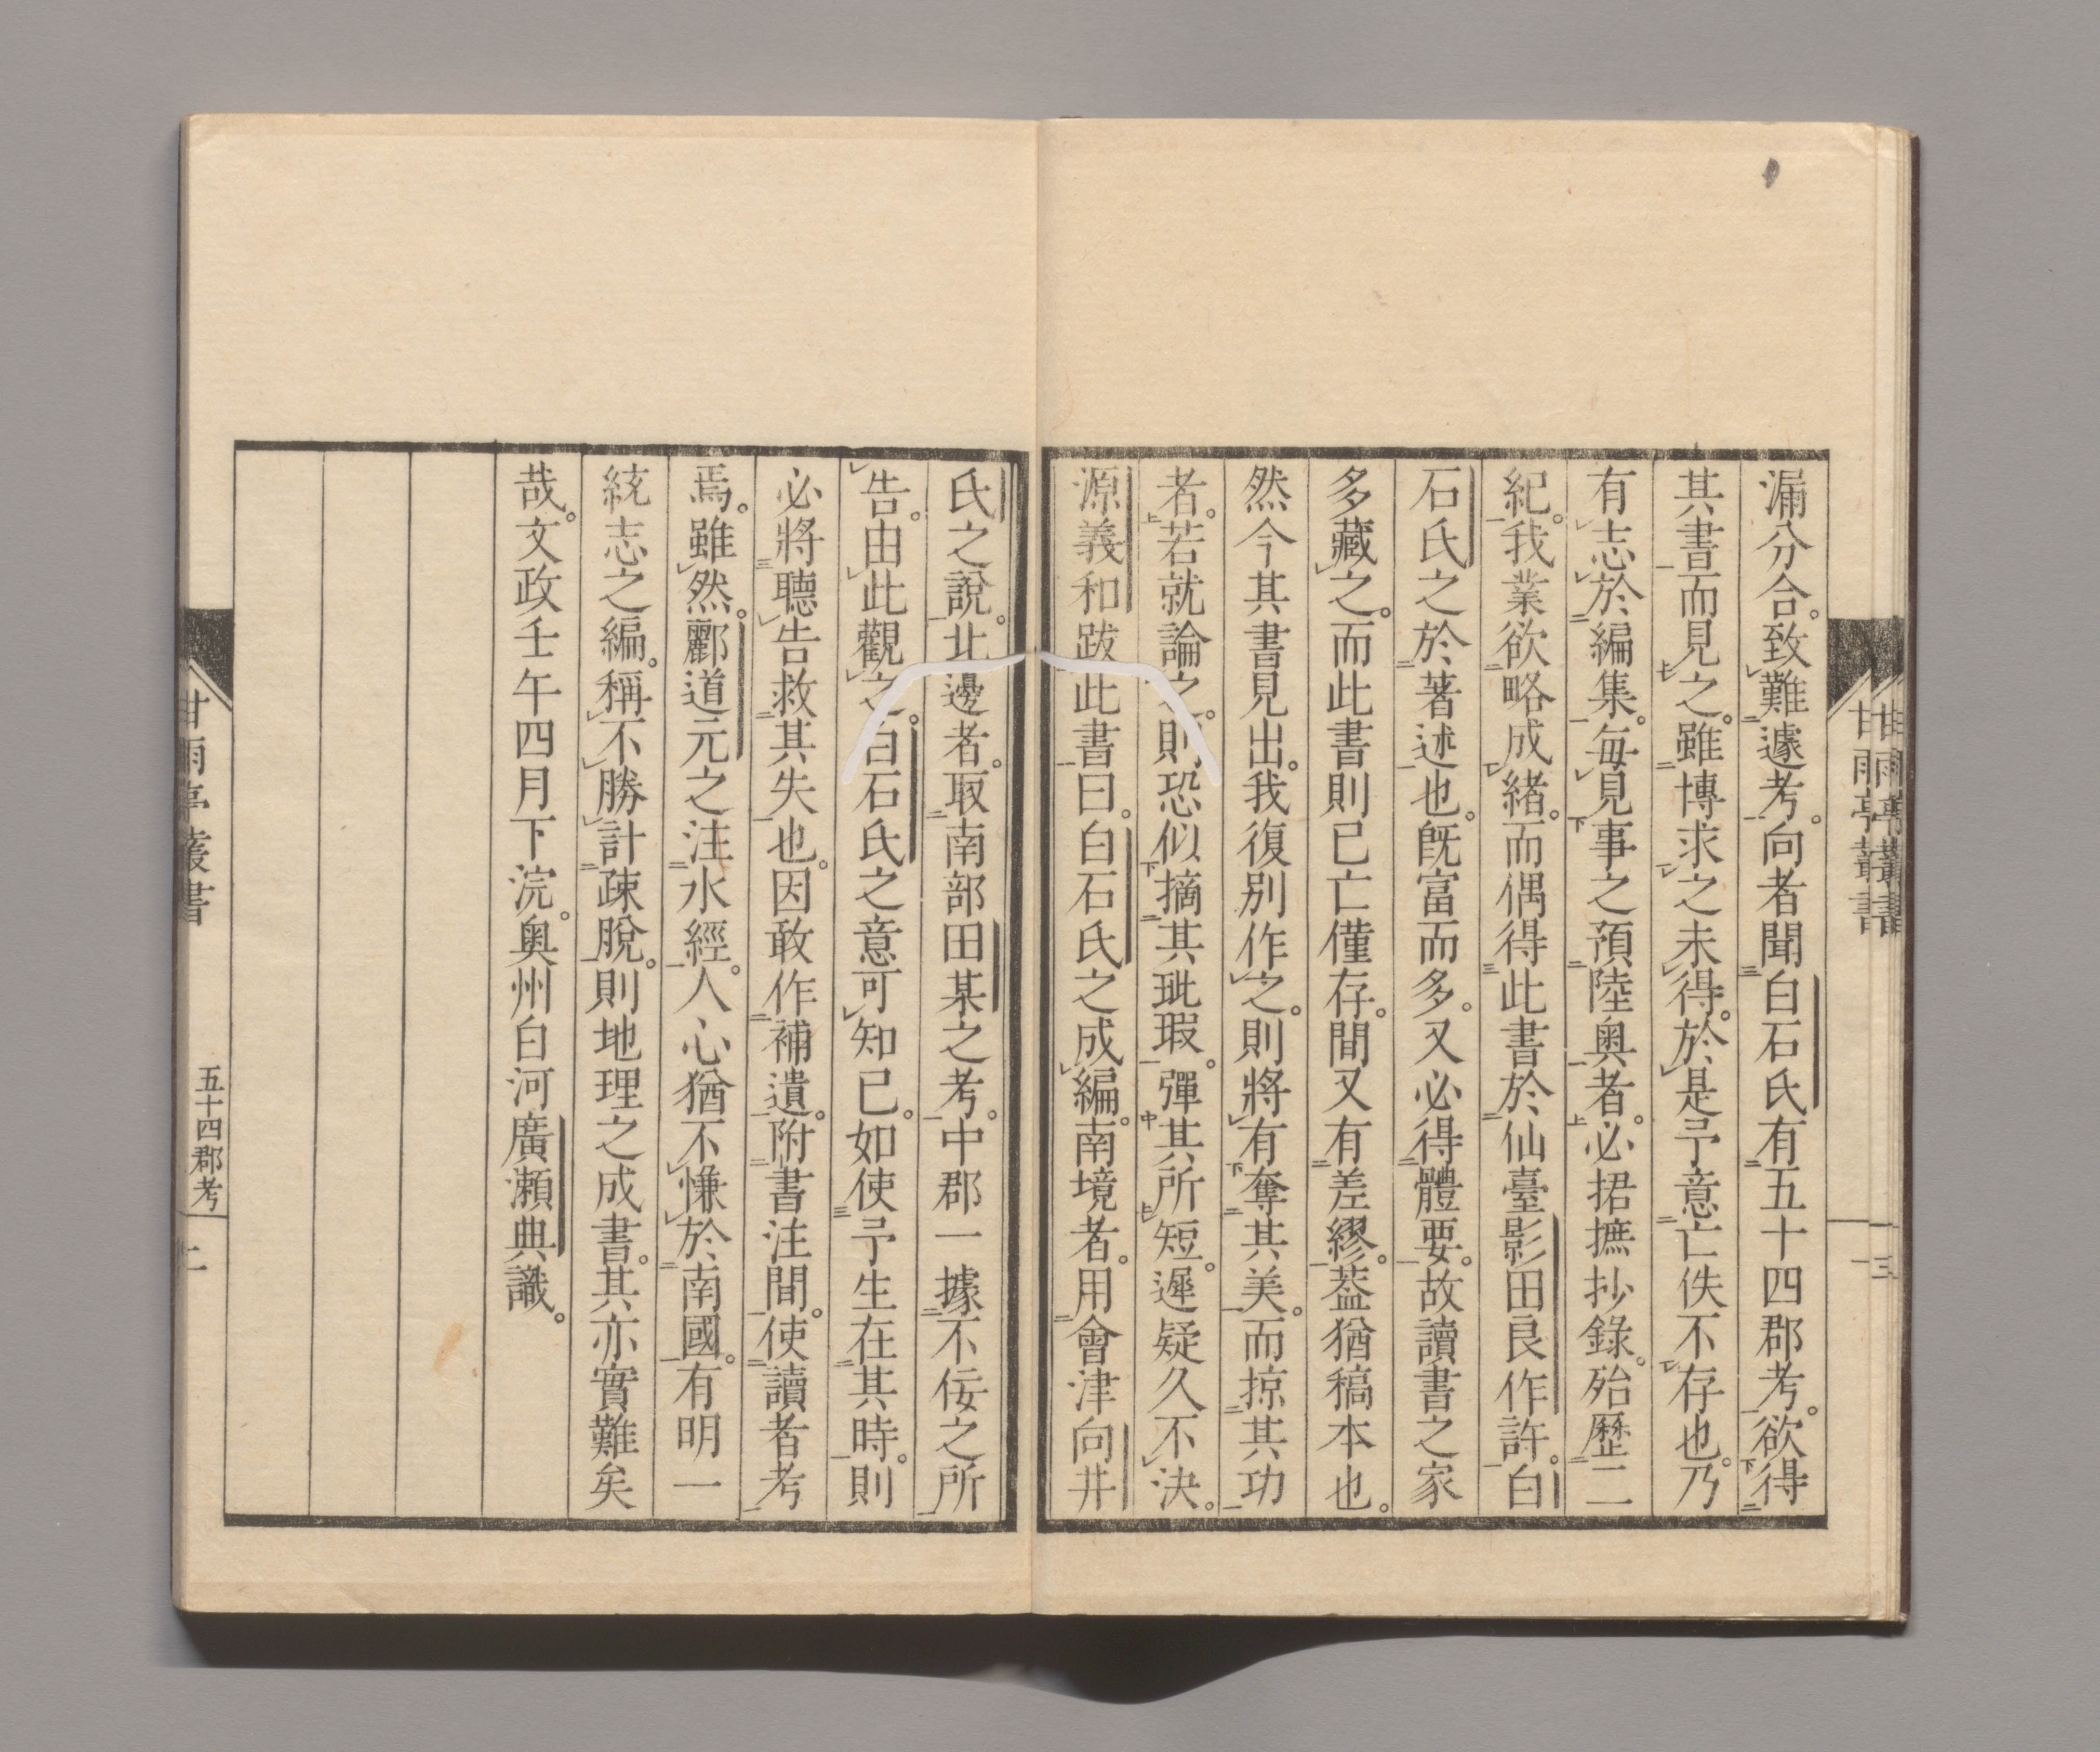 漏分合。致難遽考。向者聞白石氏有五十四郡考。欲得
其書而見之。雖博求之未得。於是予意亡佚不存也。乃
有志於編集。每見事之預陸奥者。必捃摭抄錄。殆歷二
紀。我業欲略成緒。而偶得此書於仙臺影田良作許。白
石氏之於著述也。既富而多。又必得體要。故讀書之家
多藏之。而此書則已亡僅存。間又有差繆。蓋猶稿本也。
然今其書見出。我復別作之。則將有奪其美。而掠其功
者。若就論之。則恐似摘其玼瑕。彈其所短。遲疑久不決。
源義和跋此書曰。白石氏之成編。南境者。用會津向井
氏之說。北邊者。取南部田某之考。中郡一據不佞之所
告。由此觀之。白石氏之意可知已。如使予生在其時。則
必將聽告救其失也。因敢作補遺。附書注間。使讀者考
焉。雖然。酈道元之注水經。人心猶不慊於南國。有明一
統志之編。稱不勝計疎脫。則地理之成書。其亦實難矣
哉。文政壬午四月下浣。奥州白河廣瀬典識。
甘雨亭叢書
五十四郡考